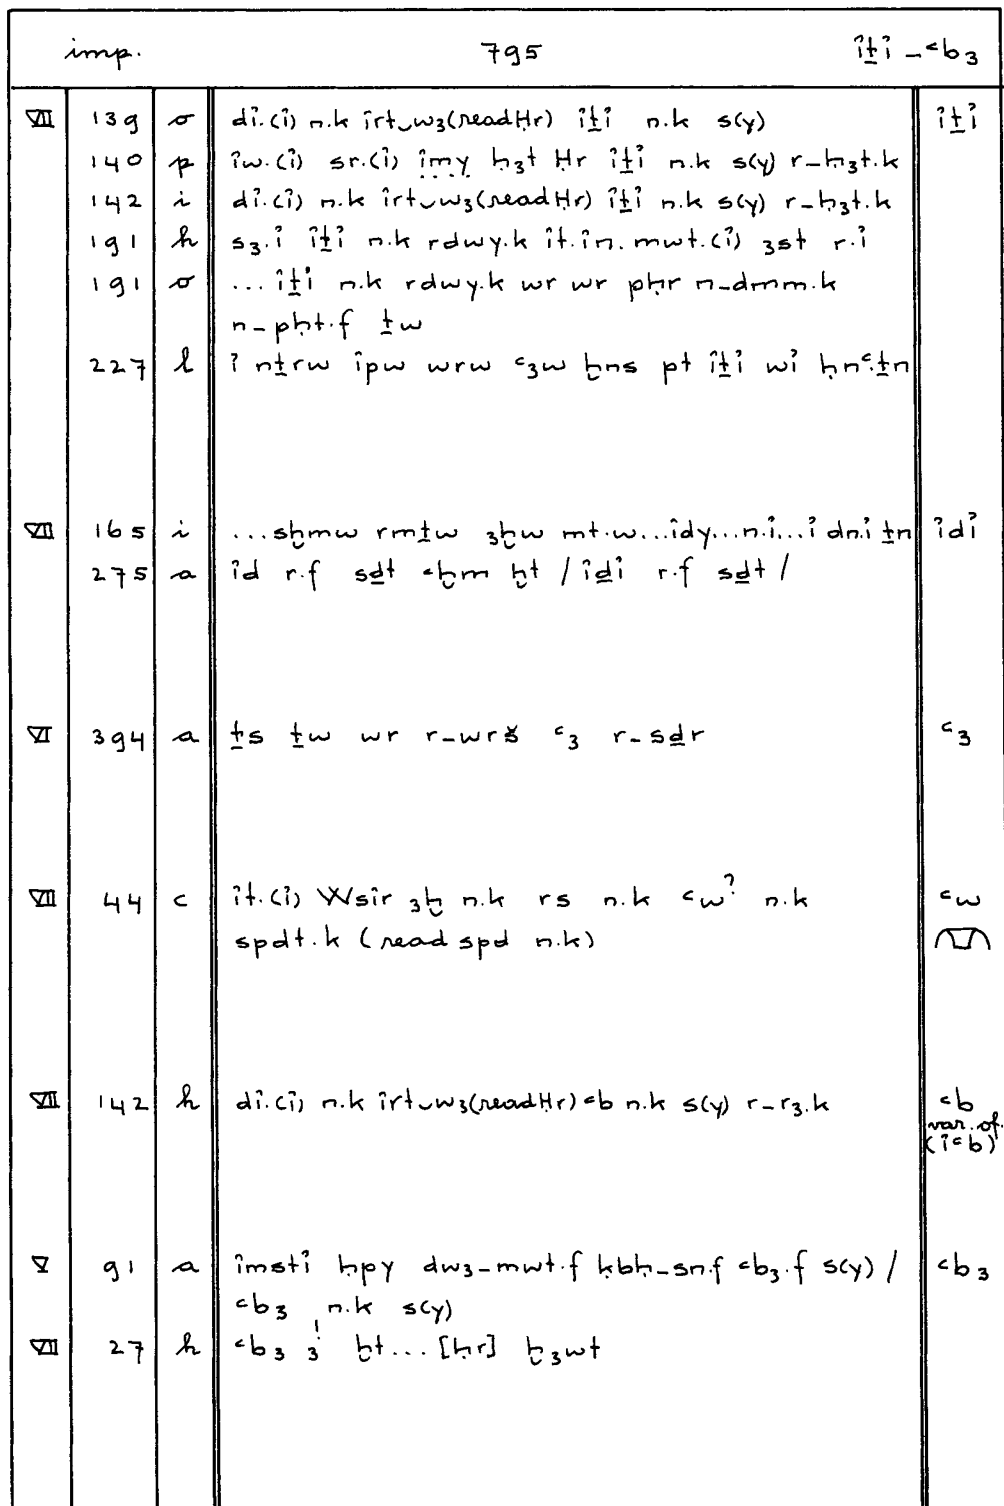 imp. 795 îṯî – ꜥbꜣ
VII 139 o dî.(î) n.k îrt‿wꜣ(read Ḥr) îṯî n.k s(y) îṯî
140 p îw.(î) sr.(î) îmy ḥꜣt Ḥr îṯî n.k s(y) r–ḥꜣt.k
142 i dî.(î) n.k îrt‿wꜣ(read Ḥr) îṯî n.k s(y) r–ḥꜣt.k
191 h sꜣ.î îṯî n.k rdwy.k ît.în.mwt.(î) ꜣst r.î
191 o ... îṯî n.k rdwy.k wr wr pḥr n–dmm.k
n–pḥt.f ṯw
227 l î nṯrw îpw wrw ꜥꜣw ḫns pt îṯî wî ḥnꜥ.ṯn
VII 165 i ...sḫmw rmṯw ꜣḫw mt.w...îdy...n.î...î dn.î ṯn îdî
275 a îd r.f sḏt ꜥḫm ḫt / îdî r.f sḏt /
VI 394 a ṯs ṯw wr r–wrš ꜥꜣ r–sḏr ꜥꜣ
VII 44 c ît.(î) Wsîr ꜣḫ n.k rs n.k ꜥw? n.k ꜥw
spdt.k (read spd n.k)
VII 142 h dî.(î) n.k îrt‿wꜣ(read Ḥr) ꜥb n.k s(y) r–rꜣ.k ꜥb
var. of
(îꜥb)
V 91 a îmstî ḥpy dwꜣ–mwt.f ḳbḥ–sn.f ꜥbꜣ.f s(y) / ꜥbꜣ
ꜥbꜣ n.k s(y)
VII 27 h ꜥbꜣ ꜣ! ḫt... [ḥr] ḫꜣwt